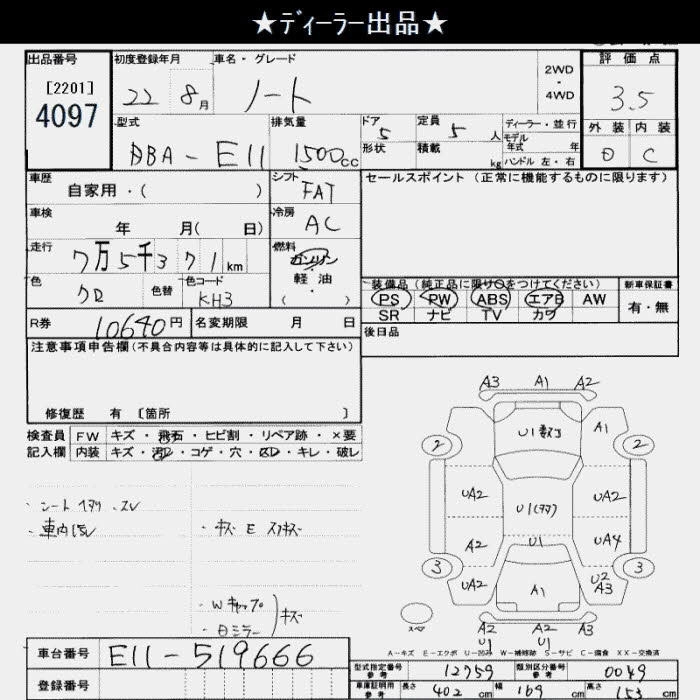 ★ディーラー出品★
出品番号
[2201]
4097
初度登録年月
22 8月
車名・グレード
ノート
2WD
・
4WD
評価点
3.5
外装 内装
D C
型式
DBA-E11
排気量
1500cc
ドア
5
形状
定員
5人
積載
kg
ディーラー・並行
モデル
年式 年
ハンドル 左・右
車歴
自家用・( )
シフト
FAT
セールスポイント (正常に機能するものに限ります)
車検
年 月( 日)
冷房
AC
走行
7万5千371km
燃料
ガソリン
軽油
( ・ )
色
クロ
色替
色コード
KH3
装備品 (純正品に限り○をつけてください)
PS PW ABS エアB AW
SR ナビ TV カワ
新車保証書
有・無
R券
10640円
名変期限 月 日
後日品
注意事項申告欄(不具合内容等は具体的に記入して下さい)
修復歴 有 〔箇所 〕
検査員 FW キズ・飛石・ヒビ割・リペア跡・×要
記入欄 内装 キズ・汚レ・コゲ・穴・スレ・キレ・破レ
・シート
・車内
・キズ E
・Wキャップ
・ミラー
キズ
A3 A1 A2
U1
A1
2 2
UA2 UA2
U1
A2 U1 UA4
3 3
UA2 A1 U2
A3
スペア
A2 A2 A2
U1 U1
A-キズ E-エクボ U-凹み W-補修跡 S-サビ C-腐食 XX-交換済
車台番号
E11-519666
登録番号
型式指定番号
参考
12759
類別区分番号
参考
0049
車庫証明用
参考
長さ 402 cm 幅 169 cm 高さ 153 cm